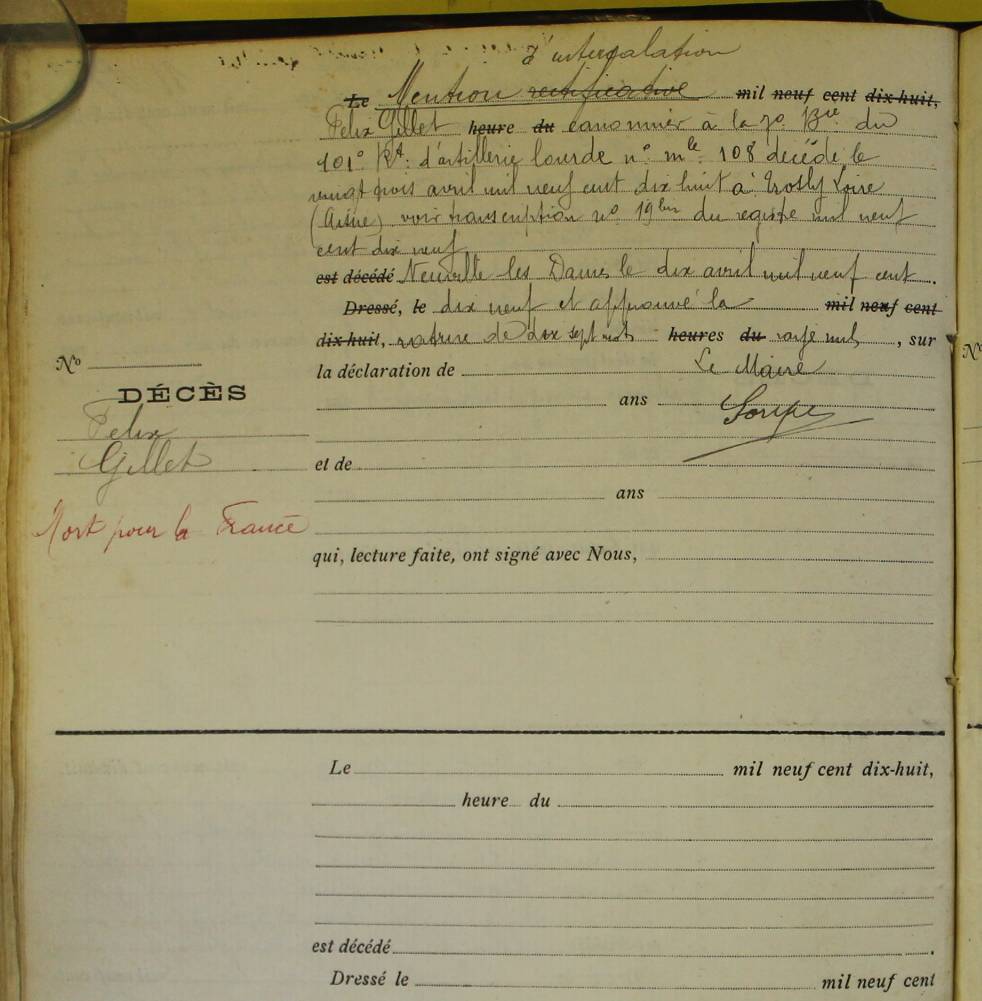 d'intercalation
Le Mention rectificative mil neuf cent dix-huit,
Felix Gillet heure du canonnier à la 70 Bie du
101° Rt. d'artillerie lourde n° mle 108 décédé le
vingt trois avril mil neuf cent dix huit à Trosly Loire
(Aisne) voir transcription n° 19 bis du registre mil neuf
cent dix neuf
est décédé Neuville les Dames le dix avril mil neuf cent.
Dressé, le dix neuf et approuvé la mil neuf cent
dix-huit, rature de dix sept mots heures du rayé nuls, sur
N°
la déclaration de Le Maire
DÉCÈS
ans
Felix
Gillet
et de
ans
Mort pour la France
qui, lecture faite, ont signé avec Nous,
Le mil neuf cent dix-huit,
heure du
est décédé .
Dressé le mil neuf cent
N°